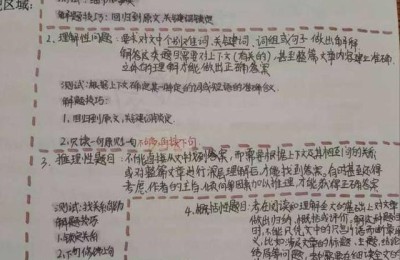 区域:
解题技巧: 回归到原文,关键词锁定
2、理解性问题: 要求对文中个别难词、关键词、词组或句子做出解释
解答此类题目需要对上下文(有关的),甚至整篇文章内容建立准确
才能做出正确答案
测试: 根据上下文确定某一的词或短语的准确含义.
解题技巧:
1、回归到原文,关键词锁定.
2、只读一句原则: 一句不够,再读下句.
3、推理性题目: 不能直接从文中找到答案,而需要根据上下文及其相互间的关系
或对整篇文章进行深层理解后,才能找到答案,有时甚至还得
考虑作者的主旨、倾向等因素加以推理,才能获得正确答案
测试: 找关
解题技巧
1、锁定关
2、下句
4、概括性题目: 考生阅读和理解全文的基础上对文章
做出归纳、概括或评价,解此种题目
不能只凭文中的只言片语而断章取
义,比如涉及文章的标题、主题、结论
结局等问题,都需要在细读全文的